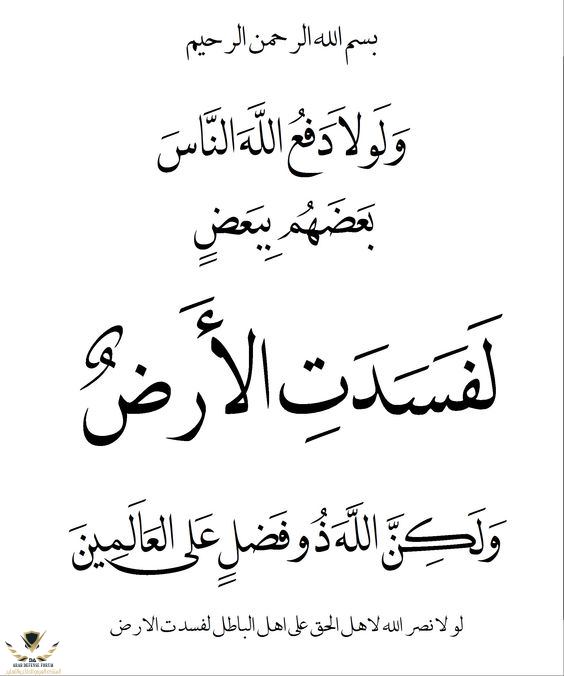 بسم الله الرحمن الرحيم
وَلَولاَ دَفعُ اللَّهَ النَّاسَ
بَعَضَهُمِ بِبَعَضٍ
لَفَسَدَتِ الأَرضُ
وَلَكِنَّ اللَّهَ ذُو فَضلٍ عَلى العَالَمِينَ
لو لا نصر الله لاهل الحق على اهل الباطل لفسدت الارض
ARAB DEFENSE FORUM